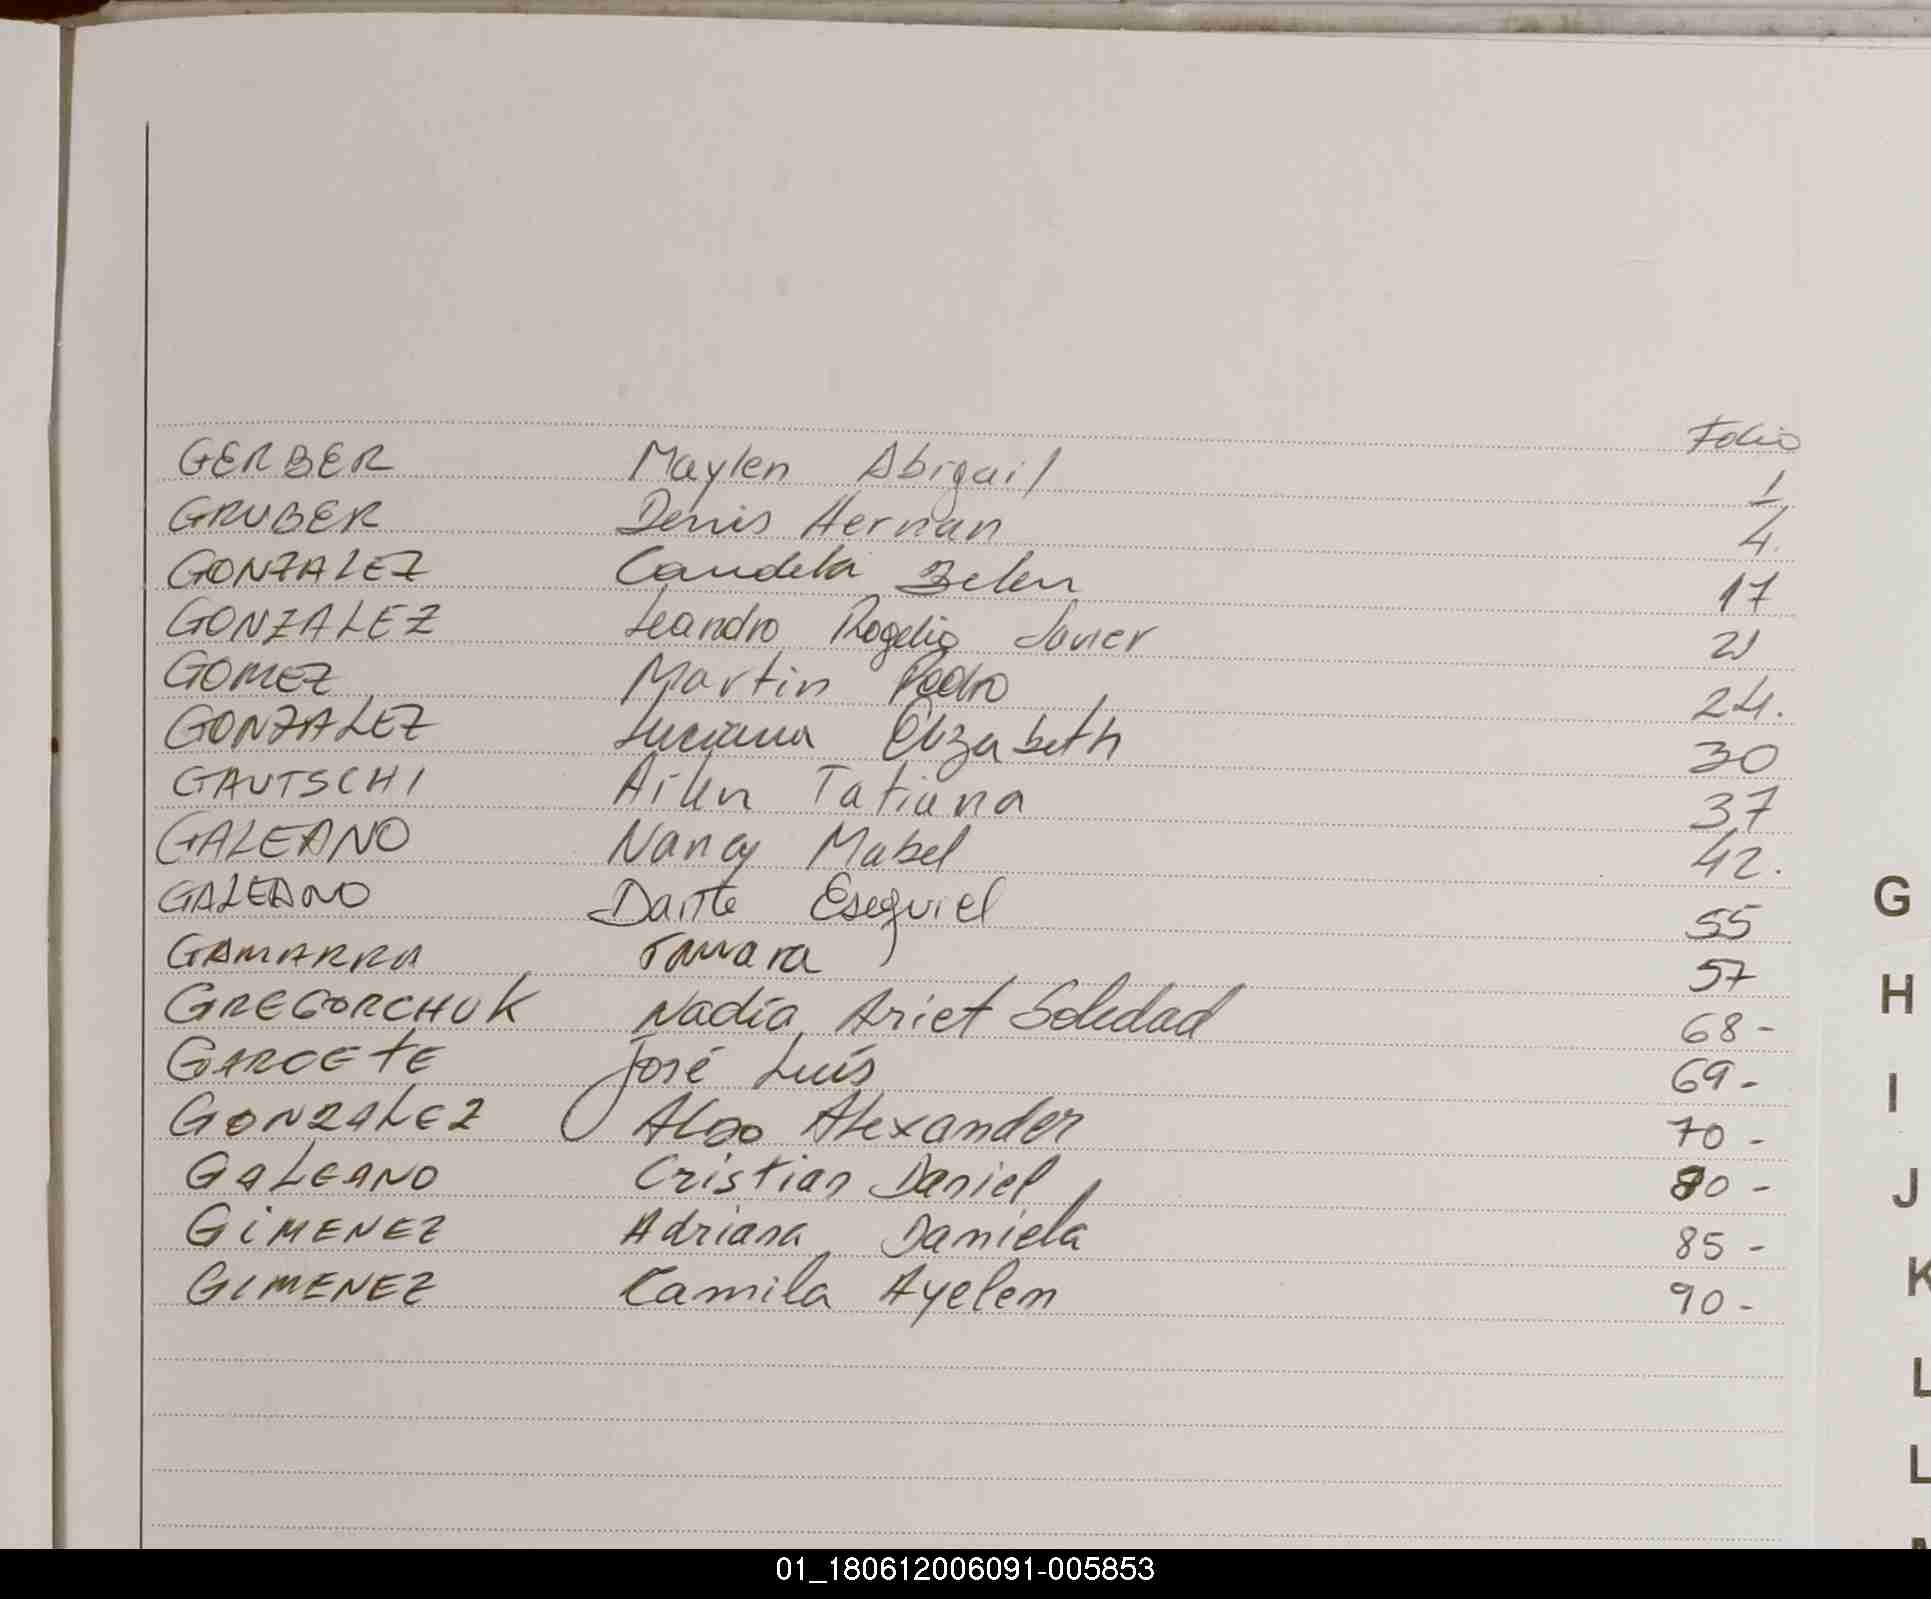 Folio
GERBER Maylen Abigail 1
GRUBER Denis Hernan 4.
GONZALEZ Candela Belen 17
GONZALEZ Leandro Rogelio Javier 21
GOMEZ Martin Pedro 24.
GONZALEZ Luciana Elizabeth 30
GAUTSCHI Ailen Tatiana 37
GALEANO Nancy Mabel 42.
GALEANO Dante Esequiel 55
GAMARRA Tamara 57
GREGORCHUK Nadia Ariet Soledad 68-
GARCETE José Luís 69-
GONZALEZ Aldo Alexander 70-
GALEANO Cristian Daniel 80-
GIMENEZ Adriana Daniela 85-
GIMENEZ Camila Ayelen 90-
G
H
I
J
K
L
L
01_180612006091-005853